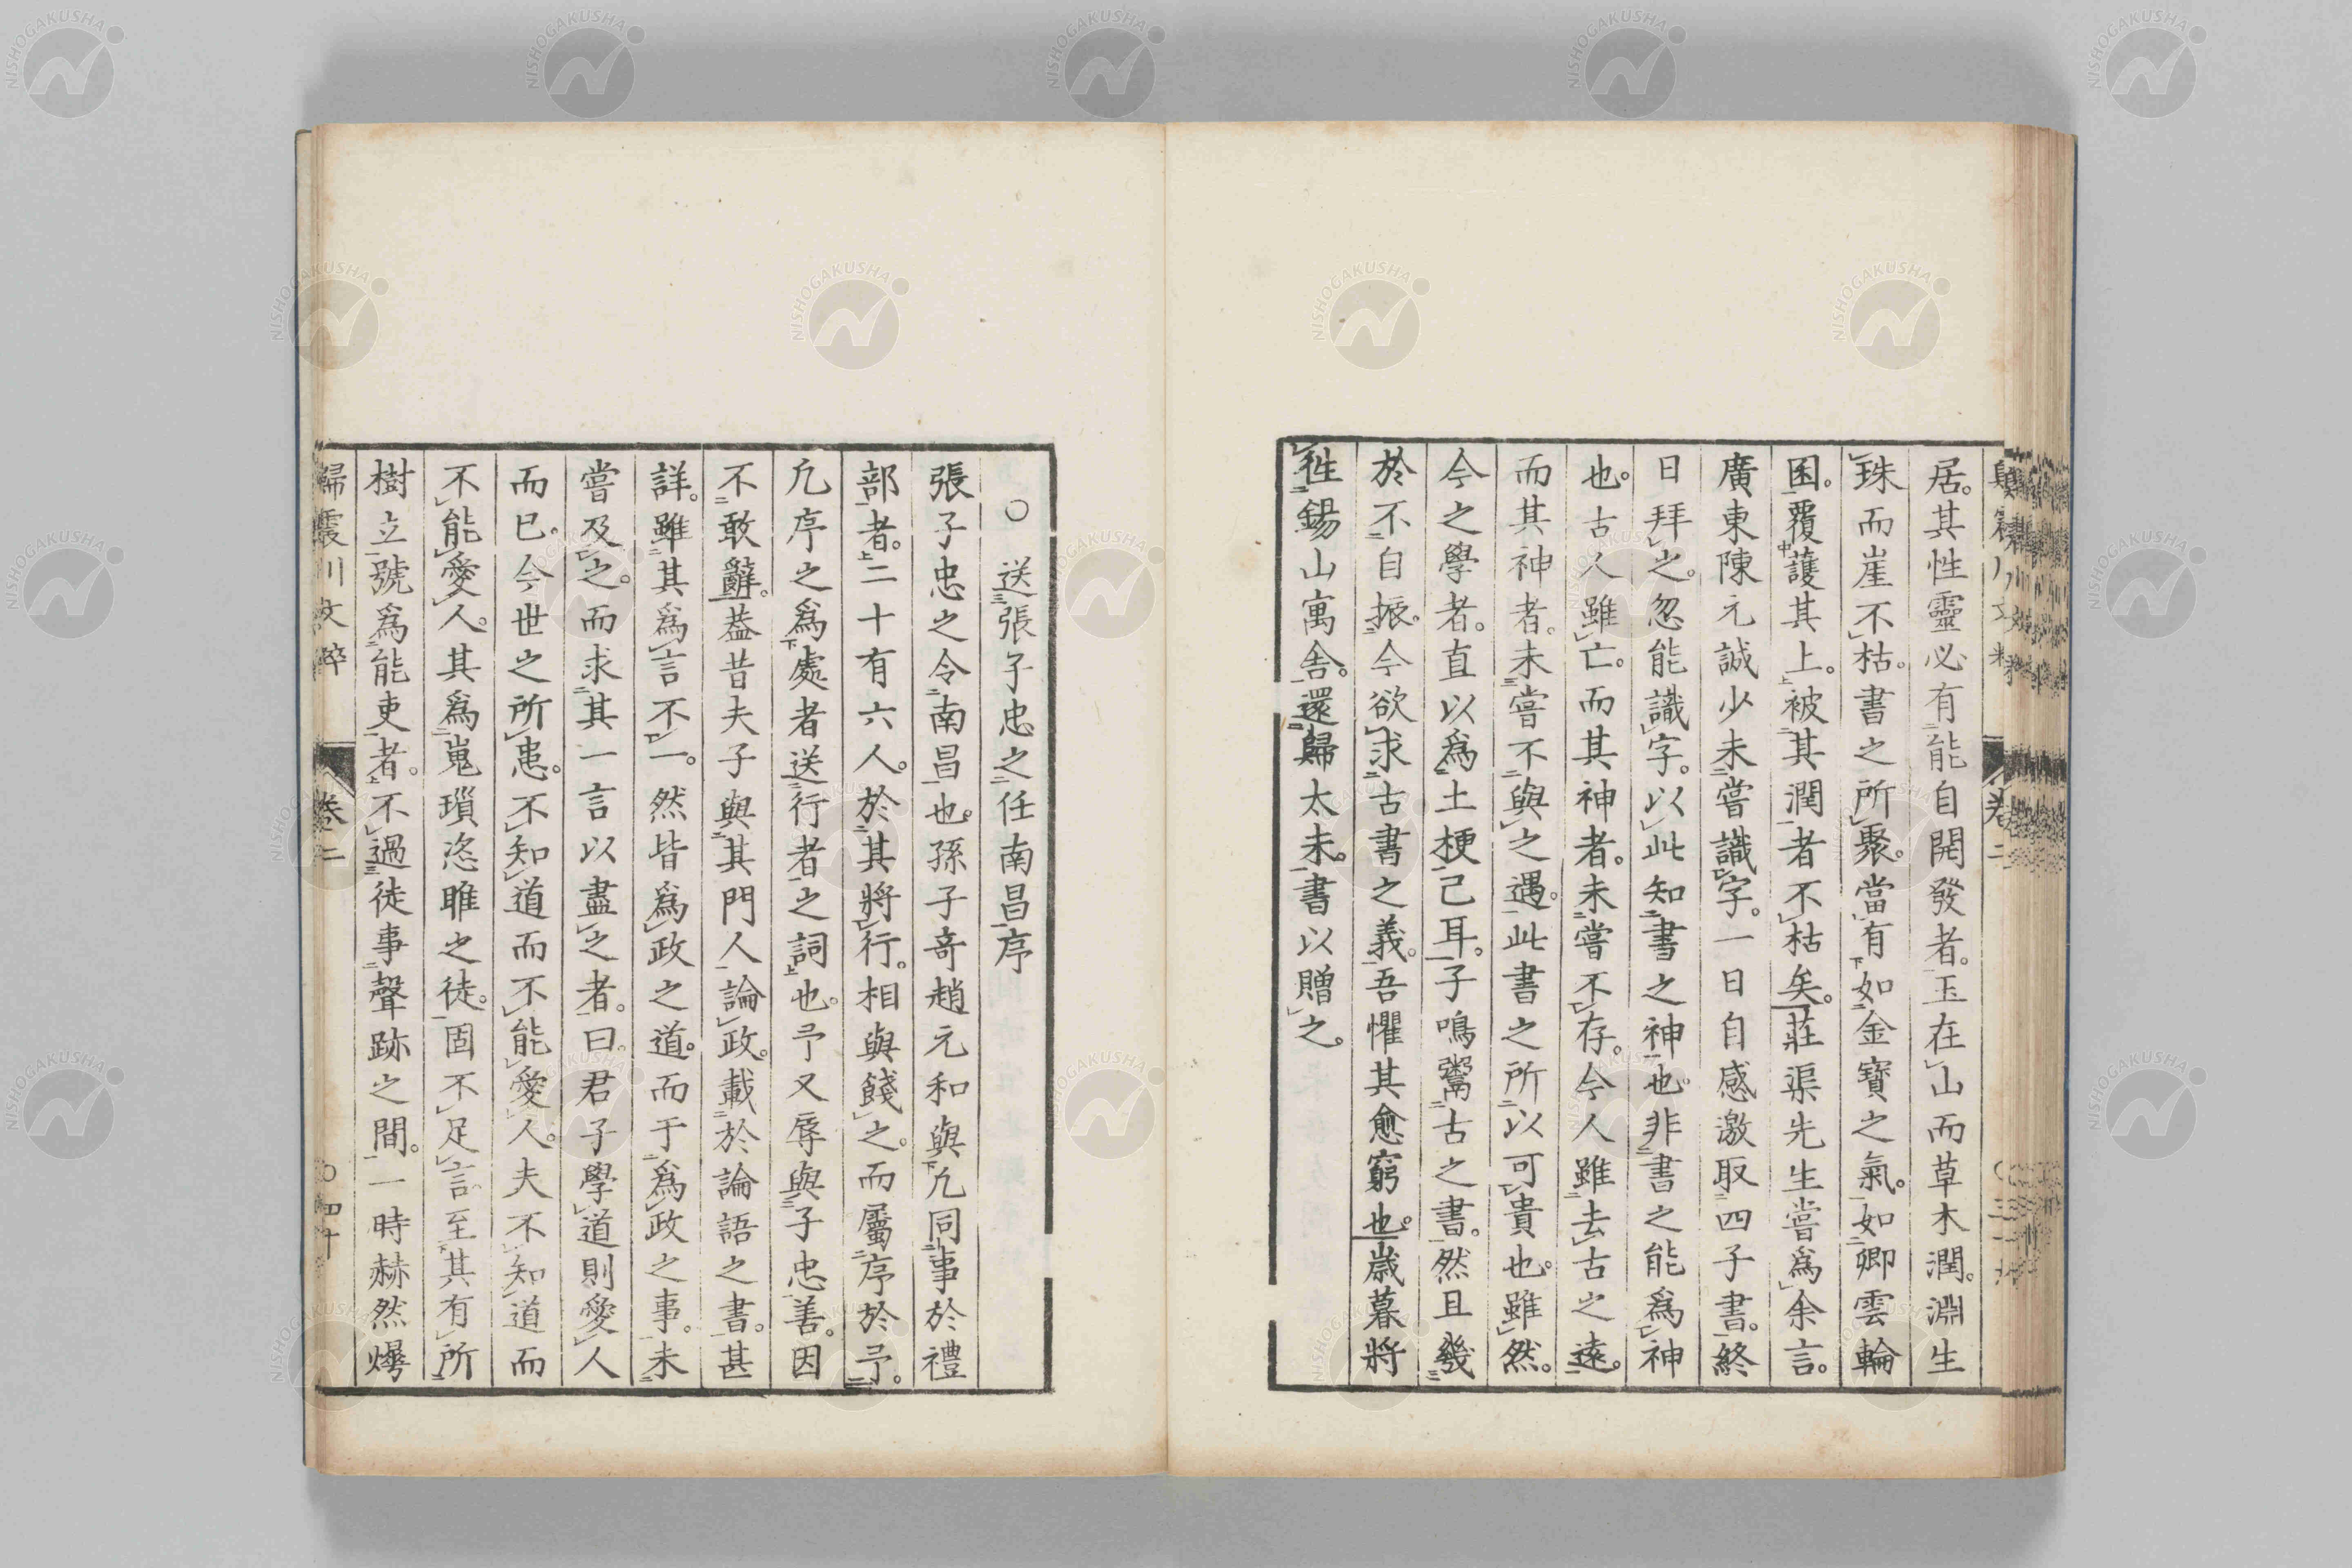 居。其性靈必有能自開發者。玉在山而草木潤。淵生
珠而崖不枯。書之所聚。當有如金寶之氣。如卿雲輪
囷。覆護其上。被其潤者不枯矣。莊渠先生嘗爲余言。
廣東陳元誠少未嘗識字。一日自感激取四子書。終
日拜之。忽能識字。以此知書之神也。非書之能爲神
也。古人雖亡。而其神者。未嘗不存。今人雖去古之遠。
而其神者。未嘗不與之遇。此書之所以可貴也。雖然。
今之學者。直以爲土梗己耳。子鳴鬻古之書。然且幾
於不自振。今欲求古書之義。吾懼其愈窮也。歲暮將
徃錫山寓舎。還歸太末。書以贈之。
○送張子忠之任南昌序
張子忠之令南昌也。孫子竒趙元和與凢同事於禮
部者。二十有六人。於其將行。相與餞之。而屬序於予。
凢序之爲處者送行者之詞也。予又辱與子忠善。因
不敢辭。葢昔夫子與其門人論政。載於論語之書。甚
詳。雖其爲言不一。然皆爲政之道。而于爲政之事。未
嘗及之。而求其一言以盡之者。曰。君子學道則愛人
而已。今世之所患。不知道而不能愛人。夫不知道而
不能愛人。其爲嵬瑣恣睢之徒。固不足言。至其有所
樹立號爲能吏者。不過徒事聲跡之間。一時赫然爆
歸震川文粹 卷二 ○四十
NISHOGAKUSHA